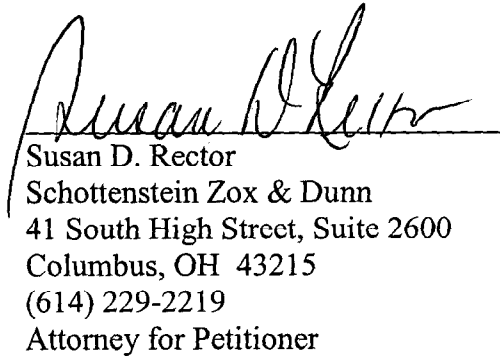 Susan D Rector
Susan D. Rector
Schottenstein Zox & Dunn
41 South High Street, Suite 2600
Columbus, OH 43215
(614) 229-2219
Attorney for Petitioner